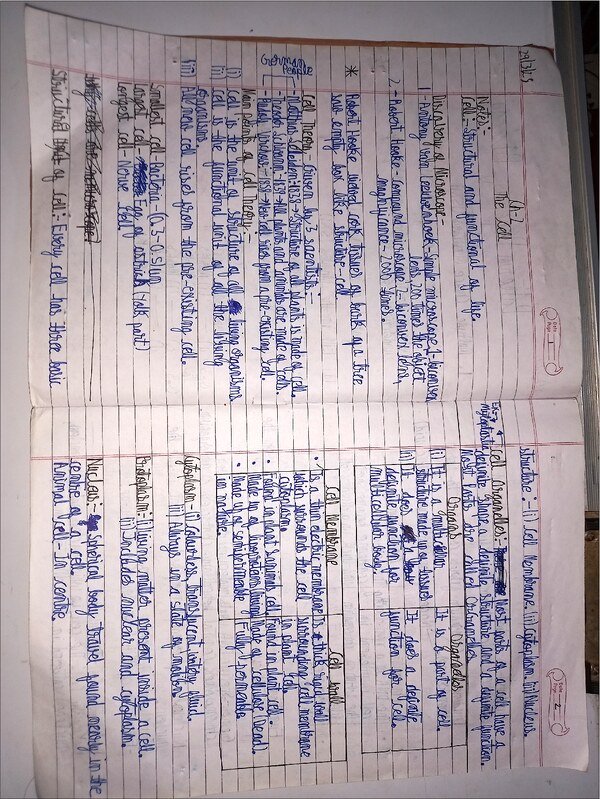 29/3/25
Date
Page 1
Ch-2
The Cell
Notes:-
Cell:- Structural and functional of life.
Discovery of Microscope-
1- Antony Von Leeuwenhoek- Simple microscope 1-
lens 200 times the object
2- Robert Hooke- Compound microscope 2-
magnificance- 2000 times.
* Robert Hooke cork tissues of bark of a tree
saw empty box like structure- cell
Cell Theory- Given by 3 scientists:-
German people
- Matthias Schleiden- 1838→ Structure of all plants is made of cell.
- Theodor Schwann- 1839→ All plants and animals are made of cells.
- Rudolf Virchow- New cell rises from a pre-existing cell.
Main points of cell theory:-
(i) Cell is the unit of structure of all living organisms.
(ii) Cell is the functional unit of all the living
organism.
(iii) All new cell rises from the pre-existing cell.
Smallest cell- bacteria (0.3-0.5) um
Largest cell- Egg of ostrich (yolk part)
Longest cell- Nerve cell
Structural of cell:- Every cell has three basic
Date
Page 2
structure:- (i) Cell Membrane (ii) Cytoplasm (iii) Nucleus.
Cell Organelles:- Most parts of a cell have a
definite shape a definite structure and a definite function.
Most parts are called Organelles
Organs | Organelles
(i) It is a multicellular | It is a part of cell.
structure made up of tissues
(ii) It does a | It does a definite
definite function for | function for cell.
multicellular body.
Cell Membrane | Cell wall
• Is a thin elastic membrane | Is a thick rigid wall
which surrounds the cell | surrounding cell membrane
cytoplasm. | in plant cell
• Found in plant & animals cell. | Found in plant cell.
• Made up of (living) | Made of cellulose (Dead).
• Made up of semipermeable | Fully Permeable
in nature.
Cytoplasm- (i) Colourless, translucent, watery fluid.
(ii) Always in a state of motion
Protoplasm: (i) Living matter present inside a cell.
(ii) Includes nuclear and cytoplasm.
Nucleus:- Spherical body found nearly in the
centre of a cell.
Animal Cell- In centre